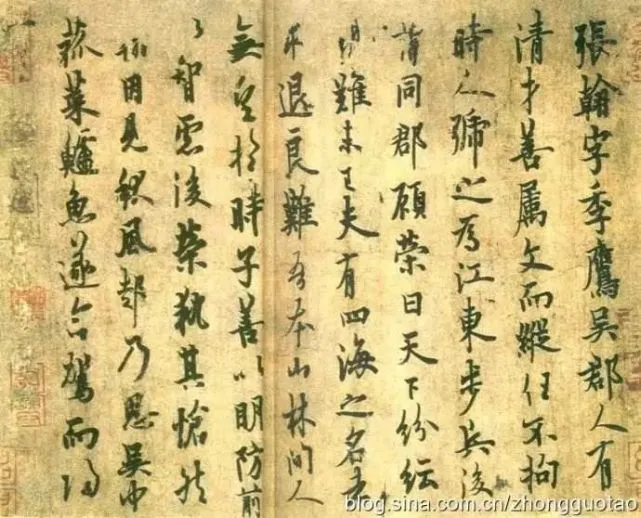 張翰字季鷹吳郡人有
清才善屬文而縱任不拘
時人號之為江東步兵後
謂同郡顧榮曰天下紛紜
難未已夫有四海之名者
求退良難吾本山林間人
無望於時子善以明防前
以智慮後榮執其愴然
翰因見秋風起乃思吳中
菰菜鱸魚遂命駕而歸
blog.sina.com.cn/zhongguotao